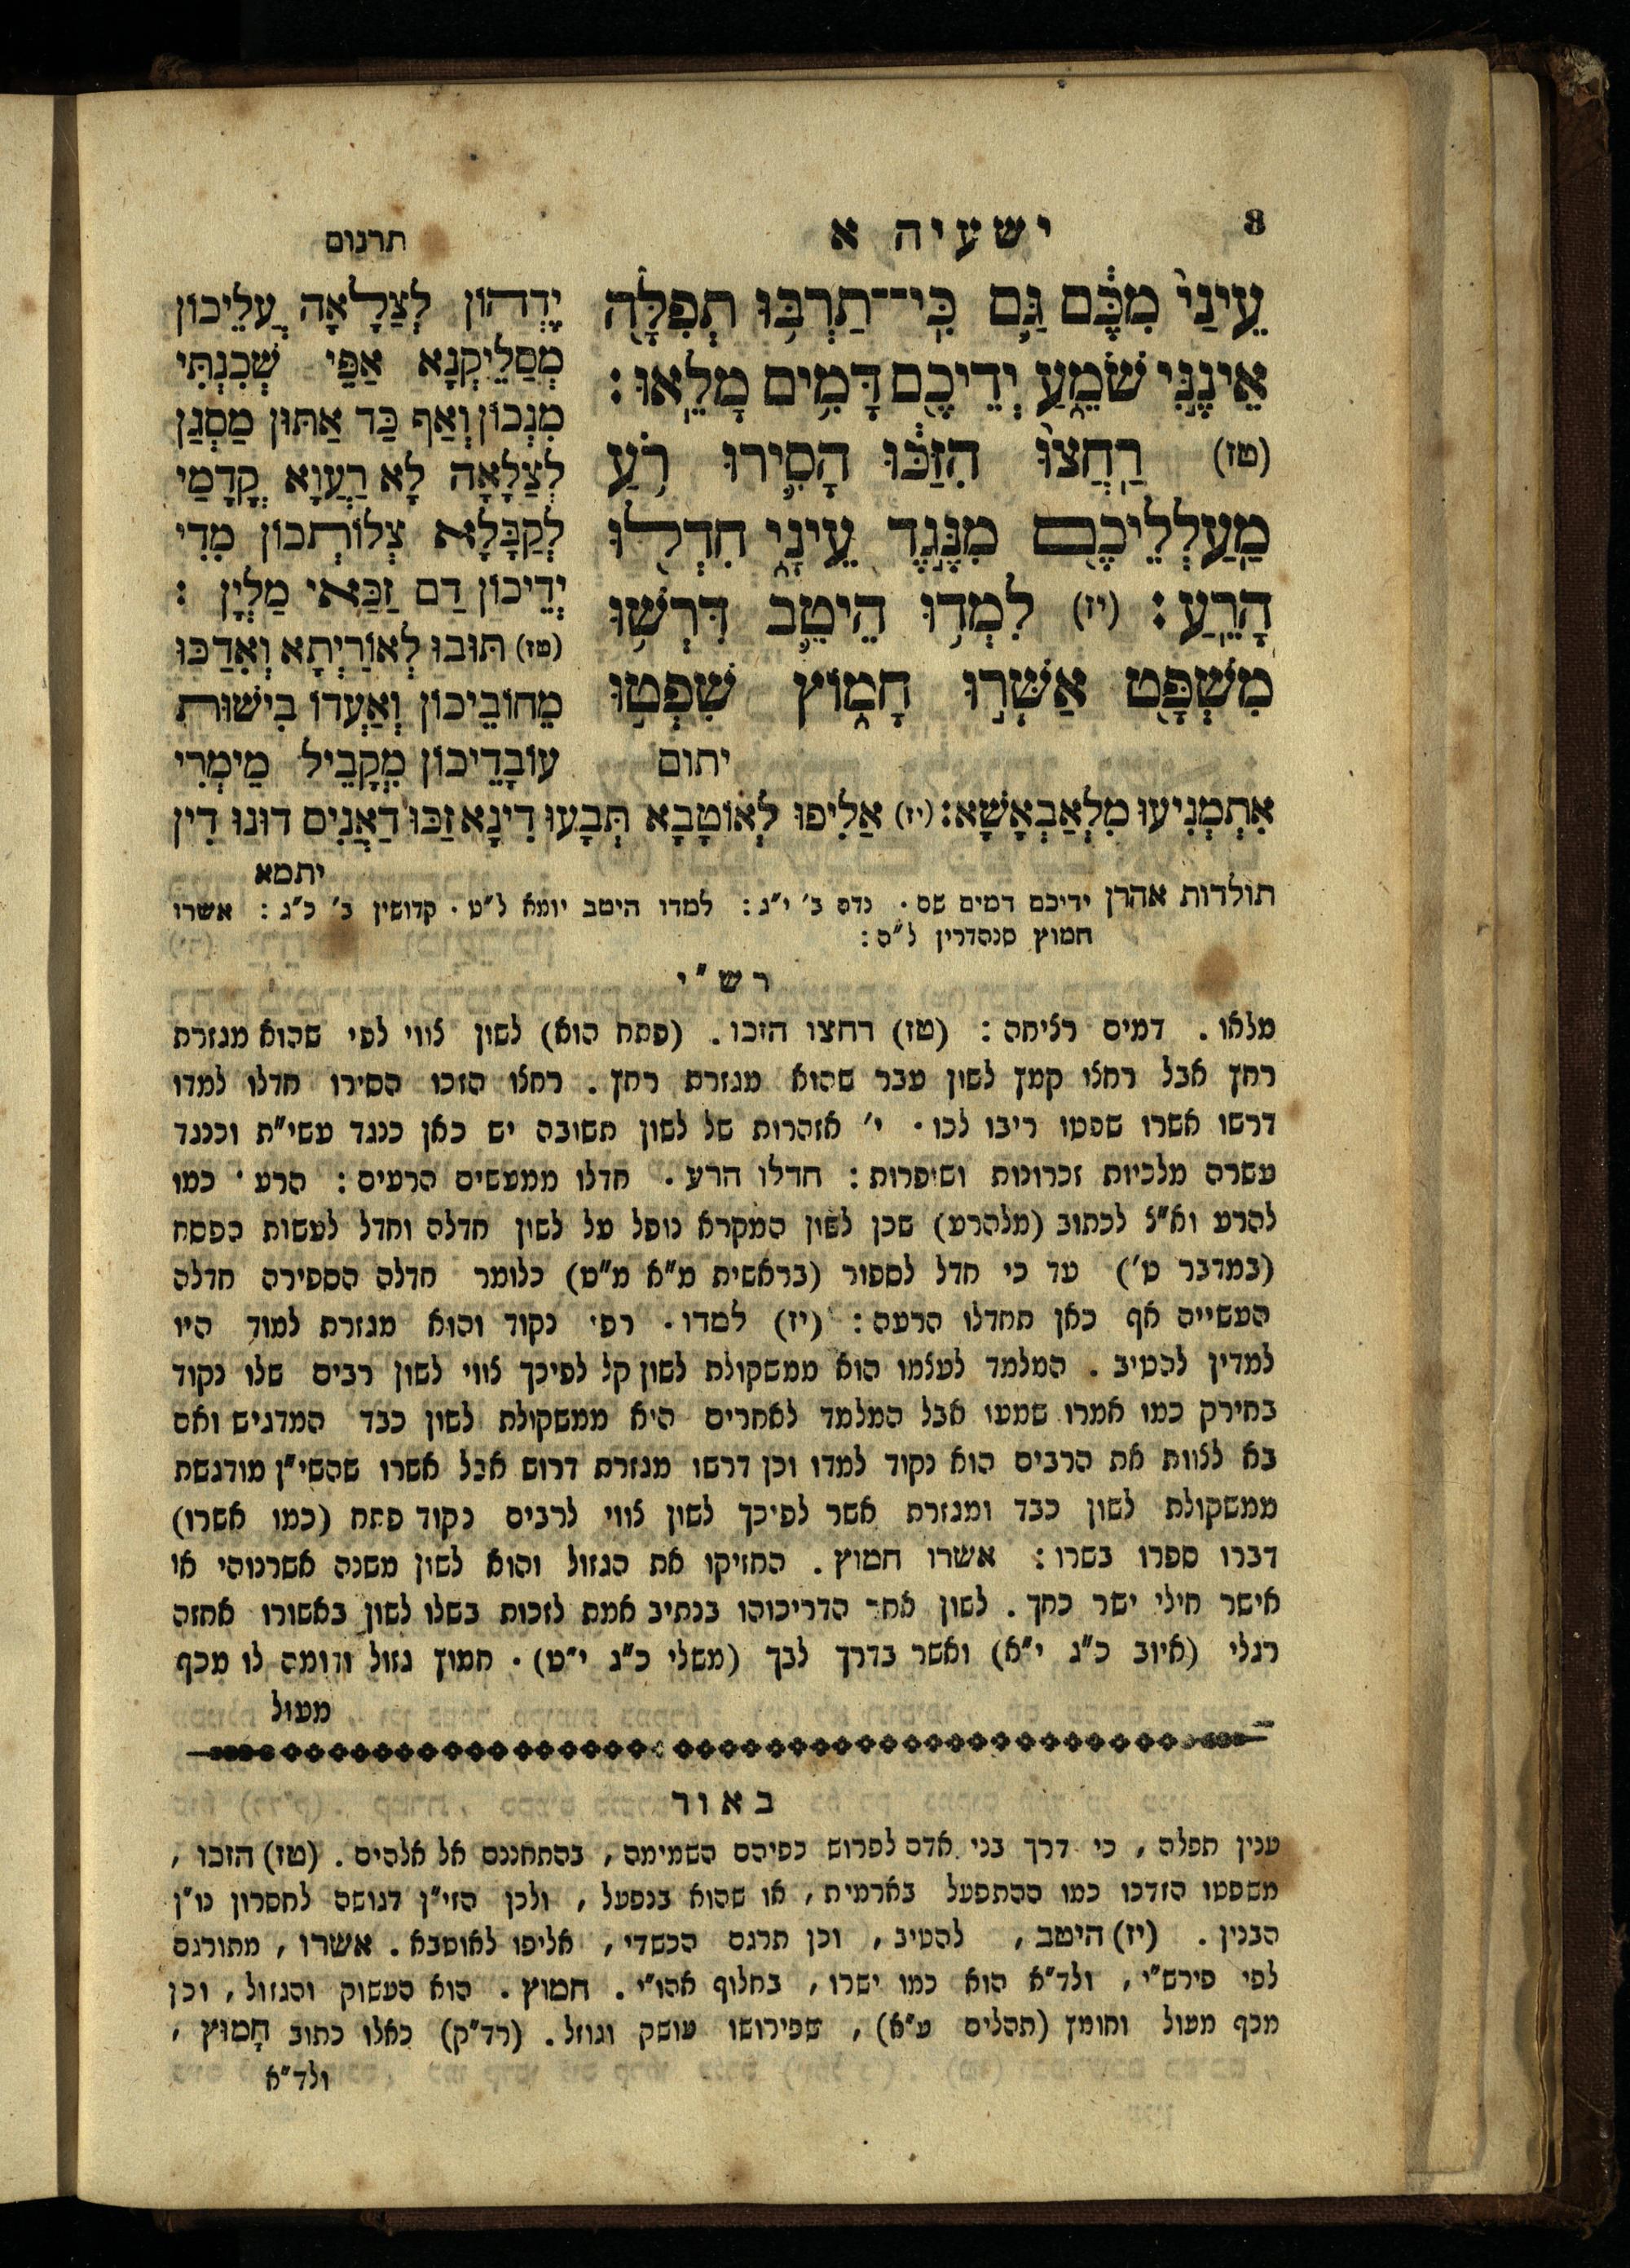 8
ישעיה א
תרגום
עֵינַי֙ מִכֶּ֔ם גַּ֛ם כִּֽי־תַרְבּ֥וּ תְפִלָּ֖ה
אֵינֶ֣נִּי שֹׁמֵ֑עַ יְדֵיכֶ֖ם דָּמִ֥ים מָלֵֽאוּ׃
(טז) רַֽחֲצוּ֙ הִזַּכּ֔וּ הָסִ֛ירוּ רֹ֥עַ
מַֽעַלְלֵיכֶ֖ם מִנֶּ֣גֶד עֵינָ֑י חִדְל֖וּ
הָרֵֽעַ׃ (יז) לִמְד֥וּ הֵיטֵ֛ב דִּרְשׁ֥וּ
מִשְׁפָּ֖ט אַשְּׁר֣וּ חָמ֑וֹץ שִׁפְט֣וּ
יתום
יֶדְהוֹן לְצַלָאָה עֲלֵיכוֹן
מְסַלֵיקְנָא אַפֵּי שְׁכִנְתִּי
מִנְכוֹן וְאַף כַּד אַתּוּן מַסְגַן
לְצַלָאָה לָא רַעֲוָא קֳדָמַי
לְקַבָּלָא צְלוֹתְכוֹן מִדִי
יְדֵיכוֹן דַם זַכַּאי מַלְיָן :
(טז) תּוּבוּ לְאוֹרַיְתָא וְאִדַכּוּ
מֵחוֹבֵיכוֹן וְאַעְדוֹ בִישׁוּת
עוֹבָדֵיכוֹן מִקֳבֵיל מֵימְרִי
אִתְמְנִיעוּ מִלְאַבְאָשָׁא: (יז) אַלִיפוּ לְאוֹטָבָא תְּבָעוּ דִינָא זַכּוּ דַאֲנִיס דוּנוּ דִין
יתמא
תולדות אהרן ידיכם דמים שם. נדה ב' י"ג: למדו היטב יומא ל"ט. קדושין ב' כ"ג: אשרו
חמוץ סנהדרין ל"ה:
רש"י
מלאו. דמים רציחה: (טז) רחצו הזכו. (פתח הוא) לשון צווי לפי שהוא מגזרת
רחץ אבל רחצו קמץ לשון עבר שהוא מגזרת רחץ. רחצו הזכו הסירו חדלו למדו
דרשו אשרו שפטו ריבו לכו. י' אזהרות של לשון תשובה יש כאן כנגד עשי"ת וכנגד
עשרה מלכיות זכרונות ושופרות: חדלו הרע. חדלו ממעשים הרעים: הרע. כמו
להרע וא"צ לכתוב (מלהרע) שכן לשון המקרא נופל על לשון חדלה וחדל לעשות הפסח
(במדבר ט') עד כי חדל לספור (בראשית מ"א מ"ט) כלומר חדלה הספירה חדלה
העשייה אף כאן תחדלו הרעה: (יז) למדו. רפי נקוד והוא מגזרת למוד היו
למדין להטיב. המלמד לעצמו הוא ממשקולת לשון קל לפיכך צווי לשון רבים שלו נקוד
בחירק כמו אמרו שמעו אבל המלמד לאחרים היא ממשקולת לשון כבד המדגיש ואם
בא לצוות את הרבים הוא נקוד למדו וכן דרשו מגזרת דרוש אבל אשרו שהשי"ן מודגשת
ממשקולת לשון כבד ומגזרת אשר לפיכך לשון צווי לרבים נקוד פתח (כמו אשרו)
דברו ספרו בשרו: אשרו חמוץ. החזיקו את הגזול והוא לשון משנה אשרנוהי או
אישר חילי ישר כחך. לשון אחר הדריכוהו בנתיב אמת לזכות בשלו לשון באשורו אחזה
רגלי (איוב כ"ג י"א) ואשר בדרך לבך (משלי כ"ג י"ט). חמוץ גזול ודומה לו מכף
מעול
באור
ענין תפלה, כי דרך בני אדם לפרוש כפיהם השמימה, בהתחננם אל אלהים. (טז) הזכו,
משפטו הזדכו כמו ההתפעל בארמית, או שהוא בנפעל, ולכן הזי"ן דגושה לחסרון נו"ן
הבנין. (יז) היטב, להטיב, וכן תרגם הכשדי, אליפו לאוטבא. אשרו, מתורגם
לפי פירש"י, ולד"א הוא כמו ישרו, בחלוף אהו"י. חמוץ. הוא העשוק והגזול, וכן
מכף מעול וחומץ (תהלים ע"א), שפירושו עושק וגוזל. (רד"ק) כאלו כתוב חָמוּץ,
ולד"א